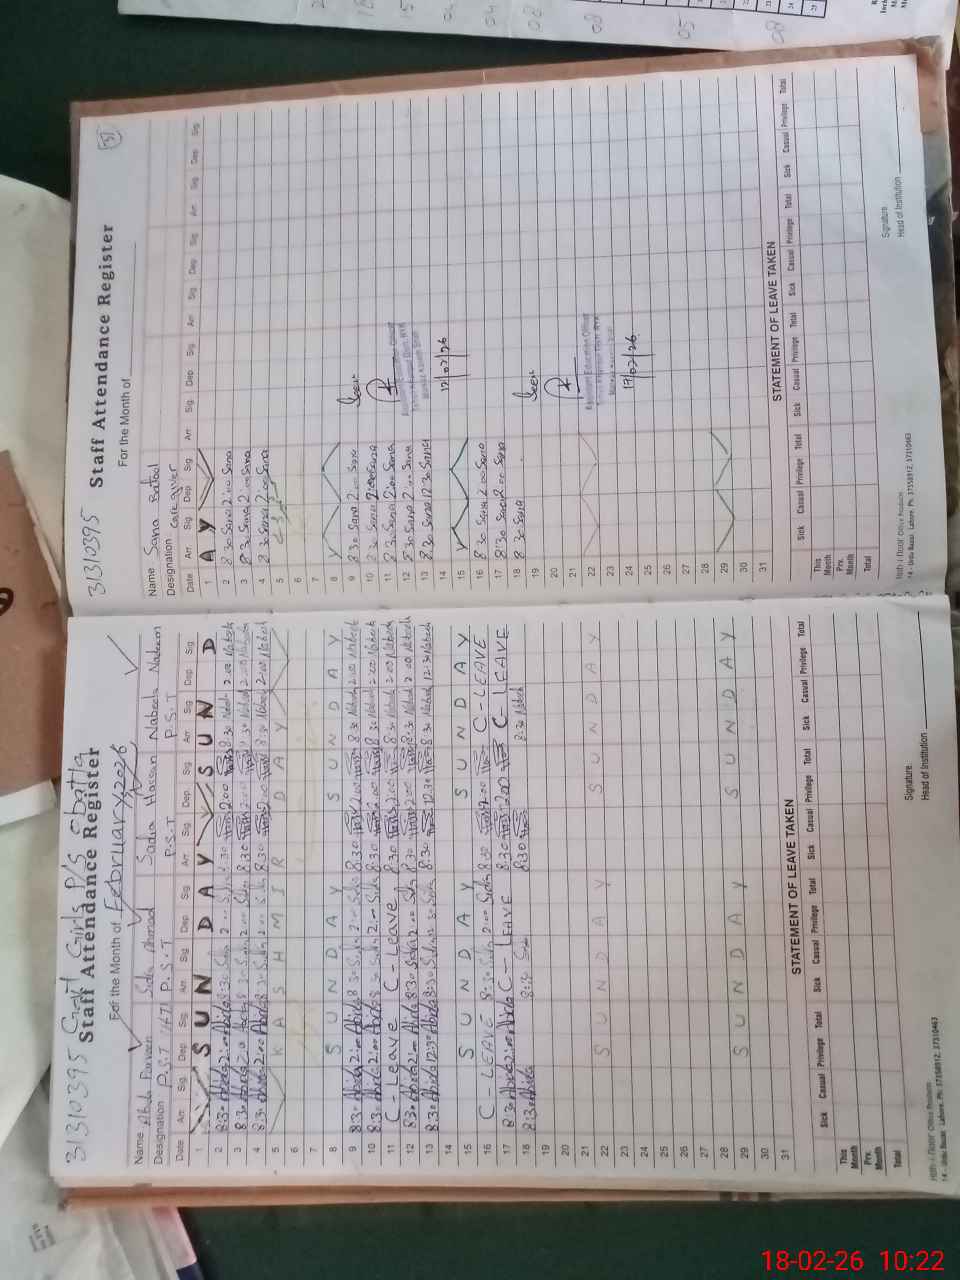 31310395 Govt Girls P/S
Staff Attendance Register
For the Month of February, 2026
Name Abida Parveen Sidra Ahmad Sadia Hassan Nabeela Nadeem
Designation P.S.T P.S.T P.S.T P.S.T
Date Arr Sig Dep Sig Arr Sig Dep Sig Arr Sig Dep Sig Arr Sig Dep Sig
1 SUNDAY SUND
2 8:30 Abida 2:00 Abida 8:30 Sidra 2:00 Sidra 8:30 2:00 8:30 Nabeela 2:00 Nabeela
3 8:30 Abida 2:00 Abida 8:30 Sidra 2:00 Sidra 8:30 2:00 8:30 Nabeela 2:00 Nabeela
4 8:30 Abida 2:00 Abida 8:30 Sidra 2:00 Sidra 8:30 2:00 8:30 Nabeela 2:00 Nabeela
5 KASHMIR DAY
6
7
8 SUNDAY SUNDAY
9 8:30 Abida 2:00 Abida 8:30 Sidra 2:00 Sidra 8:30 2:00 8:30 Nabeela 2:00 Nabeela
10 8:30 Abida 2:00 Abida 8:30 Sidra 2:00 Sidra 8:30 2:00 8:30 Nabeela 2:00 Nabeela
11 C-Leave C-Leave 8:30 2:00 8:30 Nabeela 2:00 Nabeela
12 8:30 Abida 2:00 Abida 8:30 Sidra 2:00 Sidra 8:30 2:00 8:30 Nabeela 2:00 Nabeela
13 8:30 Abida 12:30 Abida 8:30 Sidra 12:30 Sidra 8:30 12:30 8:30 Nabeela 12:30 Nabeela
14
15 SUNDAY SUNDAY
16 C-LEAVE 8:30 Sidra 2:00 Sidra 8:30 2:00 C-LEAVE
17 8:30 Abida 2:00 Abida C-LEAVE 8:30 2:00 C-LEAVE
18 8:30 Abida 8:30 Sidra 8:30 8:30 Nabeela
19
20
21
22 SUNDAY SUNDAY
23
24
25
26
27
28
29 SUNDAY SUNDAY
30
31
STATEMENT OF LEAVE TAKEN
Sick Casual Privilege Total Sick Casual Privilege Total Sick Casual Privilege Total Sick Casual Privilege Total
This Month
Prv. Month
Total
Signature
Head of Institution
14 - Urdu Bazar Lahore. Ph: 37358912, 37310463
31310395
Staff Attendance Register
For the Month of
Name Sana Batool
Designation Care giver
Date Arr Sig Dep Sig Arr Sig Dep Sig Arr Sig Dep Sig Arr Sig Dep Sig
1 AY
2 8:30 Sana 2:00 Sana
3 8:30 Sana 2:00 Sana
4 8:30 Sana 2:00 Sana
5
6
7
8
9 8:30 Sana 2:00 Sana Seen
10 8:30 Sana 2:00 Sana
11 8:30 Sana 2:00 Sana Assistant Education Officer
12 8:30 Sana 2:00 Sana
13 8:30 Sana 12:30 Sana
14 12/02/26
15
16 8:30 Sana 2:00 Sana
17 8:30 Sana 2:00 Sana
18 8:30 Sana Seen
19
20
21 Assistant Education Officer
22
23
24 17/02/26
25
26
27
28
29
30
31
STATEMENT OF LEAVE TAKEN
Sick Casual Privilege Total Sick Casual Privilege Total Sick Casual Privilege Total Sick Casual Privilege Total
This Month
Prv. Month
Total
Signature
Head of Institution
14 - Urdu Bazar Lahore. Ph: 37358912, 37310463
18-02-26 10:22